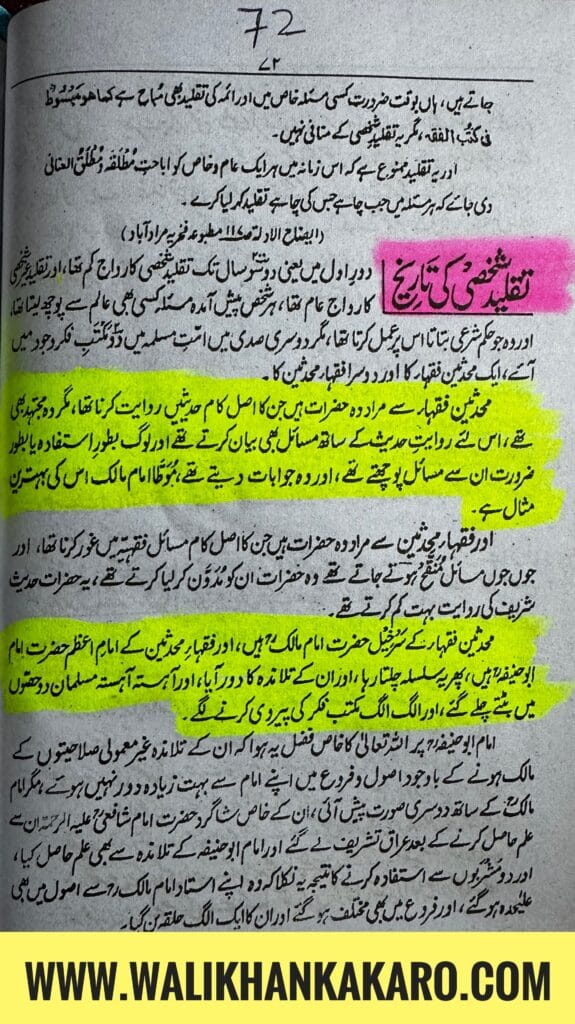 72
۷۲
جاتے ہیں، ہاں بوقت ضرورت کسی مسئلہ خاص میں اور ائمہ کی تقلید بھی مباح ہے کما ھو مبسوط
فی کتب الفقہ، مگر یہ تقلید شخصی کے منافی نہیں۔
اور یہ تقلید ممنوع ہے کہ اس زمانہ میں ہر ایک عام و خاص کو اباحتِ مُطلقہ و مُطلَقُ العنانی
دی جائے کہ ہر مسئلہ میں جب چاہے جس کی چاہے تقلید کر لیا کرے۔
(ایضاح الادلۃ ص مطبوعہ فخریہ مراد آباد)
تقلید شخصی کی تاریخ
دورِ اول میں یعنی دو سو سال تک تقلیدِ شخصی کا رواج کم تھا، اور تقلیدِ غیر شخصی
کا رواج عام تھا، ہر شخص پیش آمدہ مسئلہ کسی بھی عالم سے پوچھ لیتا تھا،
اور وہ جو حکم شرعی بتاتا اس پر عمل کرتا تھا، مگر دوسری صدی میں امتِ مسلمہ میں دو مکتبِ فکر وجود میں
آئے، ایک محدثین فقہار کا اور دوسرا فقہار محدثین کا۔
محدثین فقہار سے مراد وہ حضرات ہیں جن کا اصل کام حدیثیں روایت کرنا تھا، مگر وہ مجتہد بھی
تھے، اس لئے روایتِ حدیث کے ساتھ مسائل بھی بیان کرتے تھے اور لوگ بطورِ استفادہ یا بطور
ضرورت ان سے مسائل پوچھتے تھے، اور وہ جوابات دیتے تھے، مُوَطَّا امام مالک اس کی بہترین
مثال ہے۔
اور فقہار محدثین سے مراد وہ حضرات ہیں جن کا اصل کام مسائل فقہیہ میں غور کرنا تھا، اور
جوں جوں مسائل مُنقّح ہوتے جاتے تھے وہ حضرات ان کو مُدَوَّن کر لیا کرتے تھے، یہ حضرات حدیث
شریف کی روایت بہت کم کرتے تھے۔
محدثین فقہار کے سرخیل حضرت امام مالکؒ ہیں، اور فقہارِ محدثین کے امام اعظم حضرت امام
ابو حنیفہؒ ہیں، پھر یہ سلسلہ چلتا رہا، اور ان کے تلامذہ کا دور آیا، اور آہستہ آہستہ مسلمان دو حصّوں
میں بٹتے چلے گئے، اور الگ الگ مکتبِ فکر کی پیروی کرنے لگے۔
امام ابو حنیفہؒ پر اللہ تعالیٰ کا خاص فضل یہ ہوا کہ ان کے تلامذہ غیر معمولی صلاحیتوں کے
مالک ہونے کے باوجود اصول و فروع میں اپنے امام سے بہت زیادہ دور نہیں ہوئے، مگر امام
مالکؒ کے ساتھ دوسری صورت پیش آئی، ان کے خاص شاگرد حضرت امام شافعی علیہ الرحمہ ان سے
علم حاصل کرنے کے بعد عراق تشریف لے گئے اور امام ابو حنیفہ کے تلامذہ سے بھی علم حاصل کیا،
اور دو مشربوں سے استفادہ کرنے کا نتیجہ یہ نکلا کہ وہ اپنے استاد امام مالکؒ سے اصول میں بھی
علیٰحدہ ہو گئے، اور فروع میں بھی مختلف ہو گئے اور ان کا ایک الگ حلقہ بن گیا۔
WWW.WALIKHANKAKARO.COM